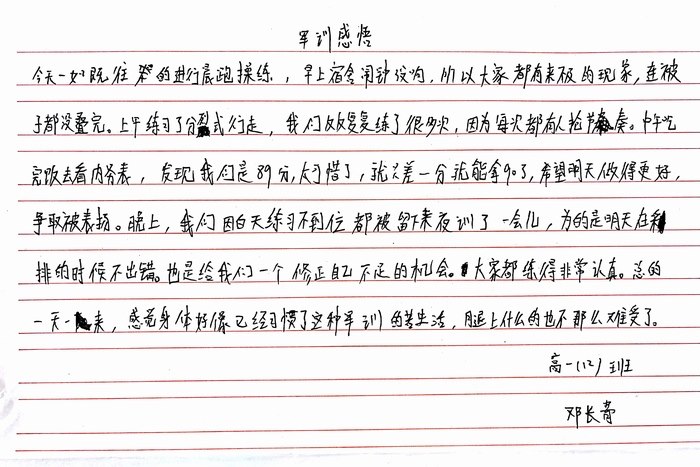 军训感悟
今天一如既往的进行晨跑操练，早上宿舍闹钟没响，所以大家都有来极的现象，连被
子都没叠完。上午练习了分裂式行走，我们反反复复练了很多次，因为每次都有人抢节奏。中午吃
完饭去看内务表，发现我们是89分，太可惜了，就只差一分就能拿90了，希望明天做得更好，
争取被表扬。晚上，我们因白天练习不到位都被留下来夜训了一会儿，为的是明天在
排的时候不出错。也是给我们一个修正自己不足的机会。大家都练得非常认真。总的
一天来，感觉身体好像已经习惯了这种军训的苦生活，腿上什么的也不那么难受了。
高一(12)班
邓长青